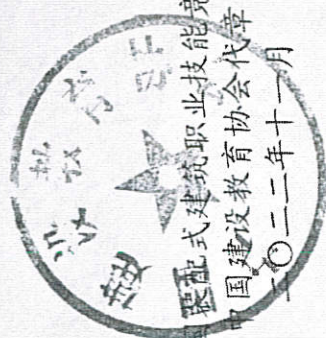 装配式建筑职业技能竞
中国建设教育协会代章
二〇二二年十一月
建设教育